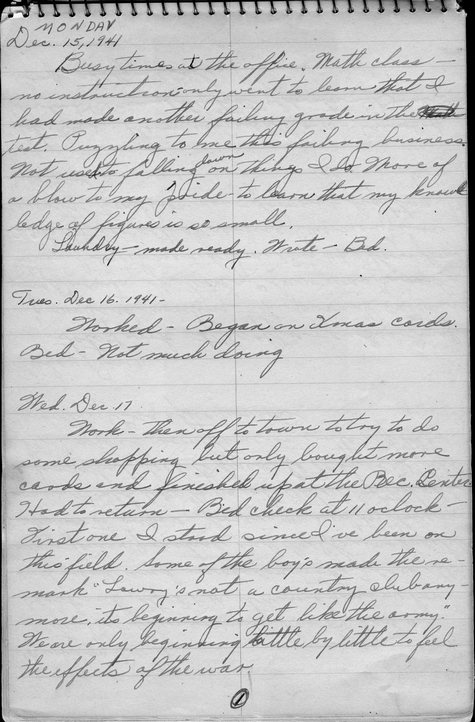 MONDAY
Dec. 15, 1941
Busy times at the office. Math class -
no instruction only went to learn that I
had made another failing grade in the
test. Puzzling to me this failing business.
Not used to falling down on things I do. More of
a blow to my pride - to learn that my know
ledge of figures is so small.
Laundry - made ready. Wrote - Bed.
Tues. Dec 16. 1941 -
Worked - Began on Xmas cards.
Bed - Not much doing
Wed. Dec. 17
Work - then off to town to try to do
some shopping but only bought more
cards and finished up at the Rec. Center
Had to return - Bed check at 11 oclock -
First one I stood since I've been on
this field. Some of the boys made the re-
mark "Lowry's not a country club any-
more, its beginning to get like the army."
We are only beginning little by little to feel
the effects of the war.
1